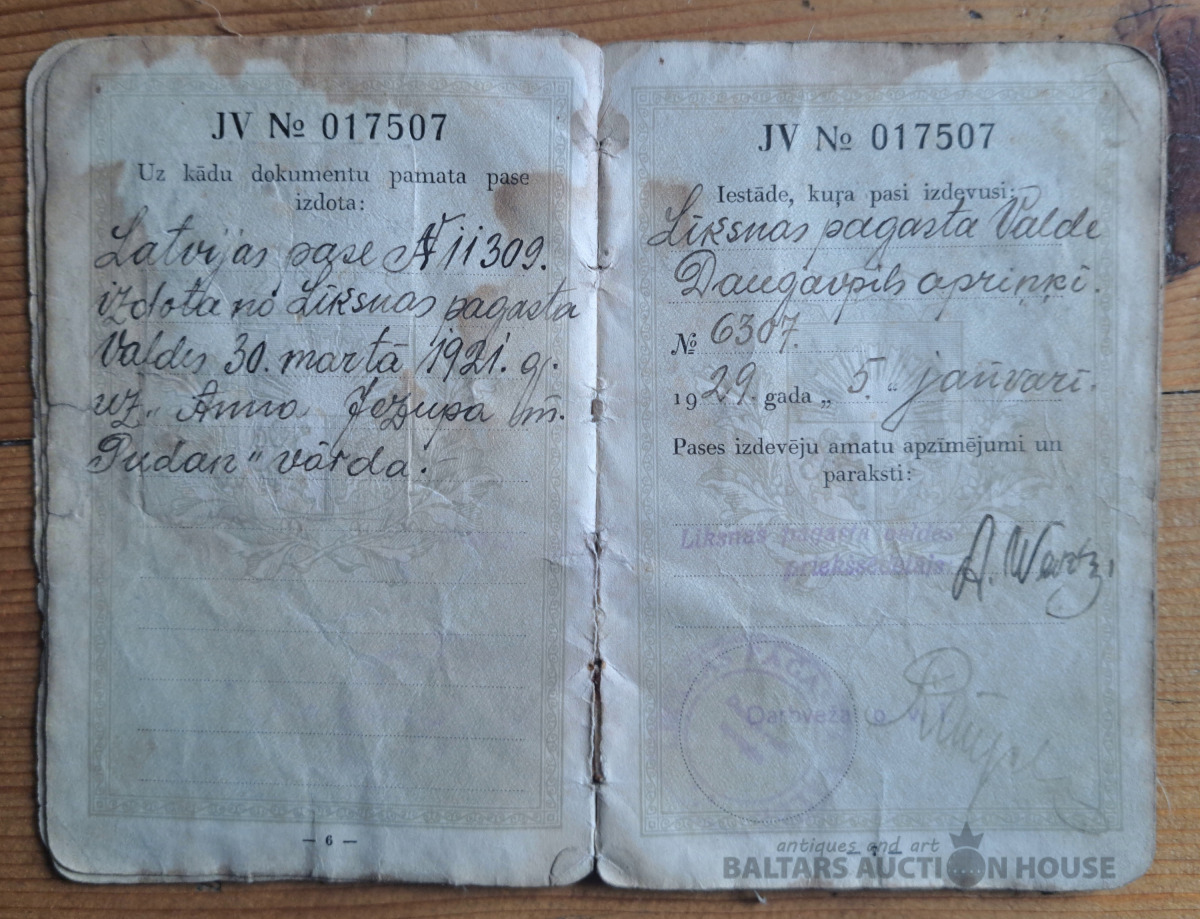 JV № 017507
Uz kādu dokumentu pamata pase
izdota:
Latvijas pase № 11309.
izdota no Līksnas pagasta
Valdes 30. martā 1921. g.
uz „Anna Jezupa m.
Pudan" vārda.
— 6 —
JV № 017507
Iestāde, kuŗa pasi izdevusi:
Līksnas pagasta Valde
Daugavpils apriņķī.
№ 6307.
1929. gada „5" janvarī.
Pases izdevēju amatu apzīmējumi un
paraksti:
Līksnas pagasta valdes
priekšsēdētājs
Darbveža
antiques and art
BALTARS AUCTION HOUSE